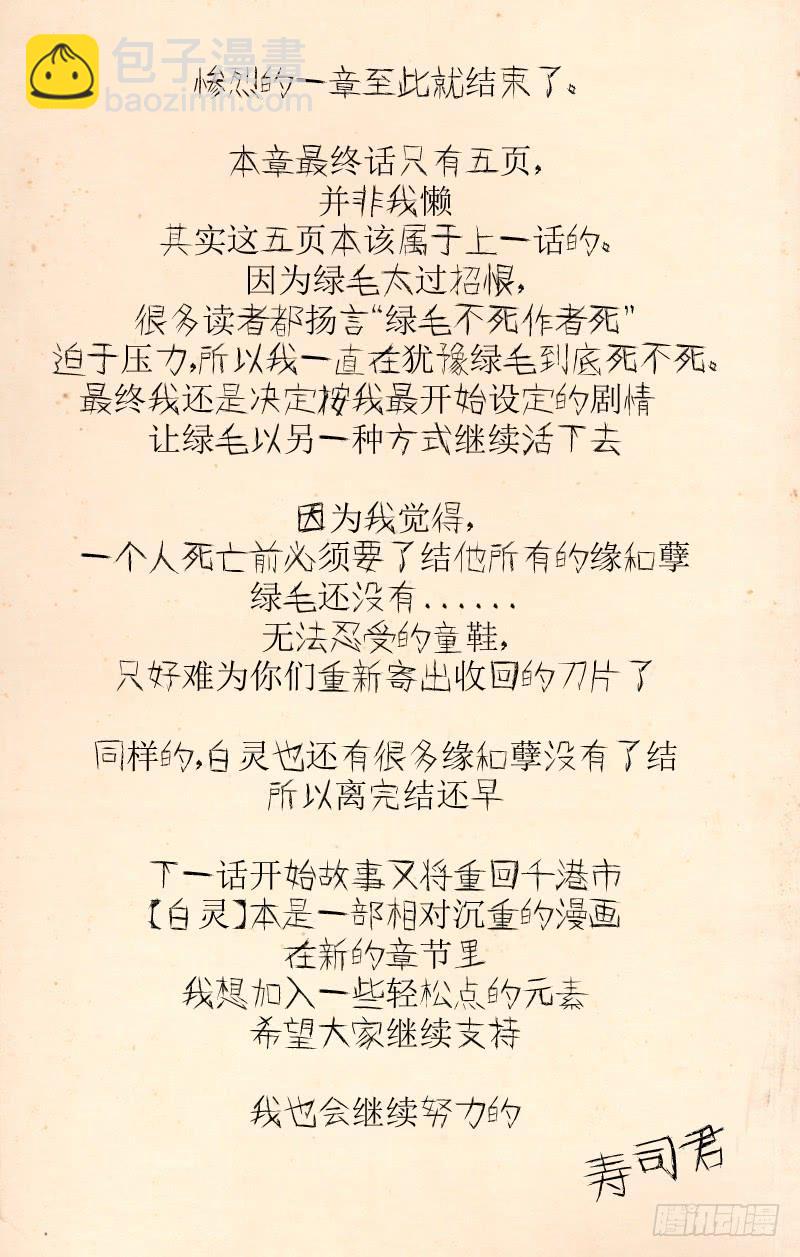 包子漫畫
baozimh.com
惨烈的一章至此就结束了。
本章最终话只有五页，
并非我懒
其实这五页本该属于上一话的。
因为绿毛太过招恨，
很多读者都扬言“绿毛不死作者死”
迫于压力，所以我一直在犹豫绿毛到底死不死。
最终我还是决定按我最开始设定的剧情
让绿毛以另一种方式继续活下去
因为我觉得，
一个人死亡前必须要了结他所有的缘和孽
绿毛还没有......
无法忍受的童鞋，
只好难为你们重新寄出收回的刀片了
同样的，白灵也还有很多缘和孽没有了结
所以离完结还早
下一话开始故事又将重回千港市
【白灵】本是一部相对沉重的漫画
在新的章节里
我想加入一些轻松点的元素
希望大家继续支持
我也会继续努力的
寿司君
腾讯动漫